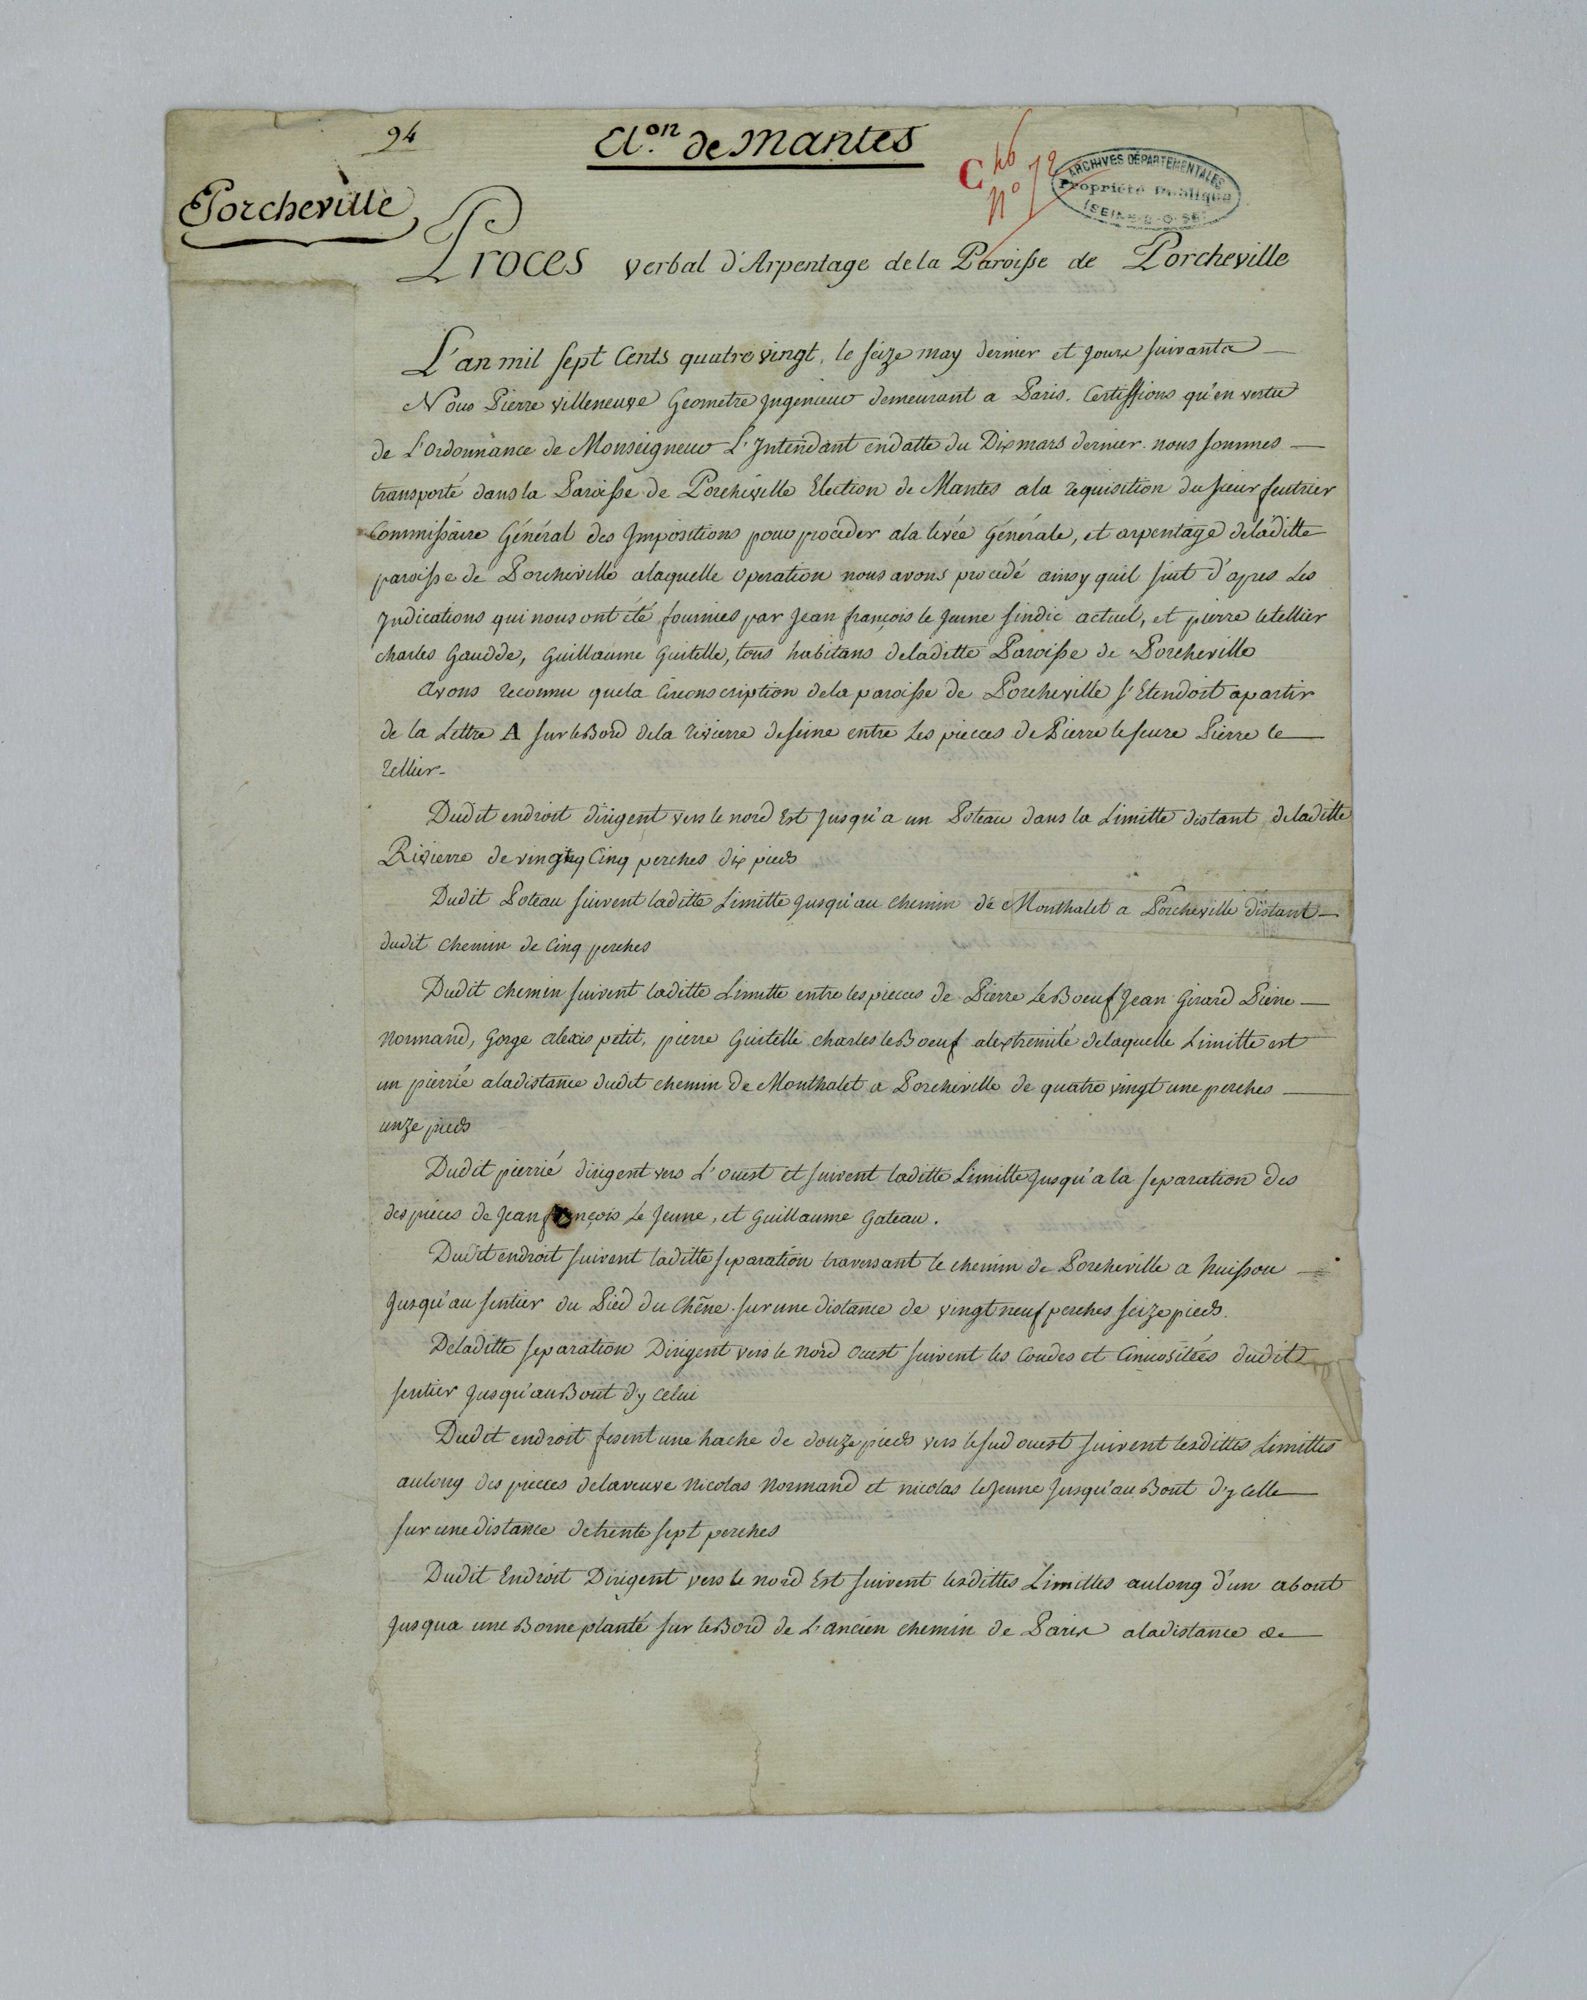 94
El.on de Mantes
C 46
N° 72
ARCHIVES DÉPARTEMENTALES
Propriété Publique
(SEINE-&-OISE)
Porcheville
Proces verbal d'Arpentage de la Paroisse de Porcheville
L'an mil sept Cents quatre vingt, le seize may dernier et jours suivants
Nous Pierre Villeneuve Geometre Ingenieur demeurant a Paris. Certiffions qu'en vertu
de L'ordonnance de Monseigneur L'Intendant en datte du Dix mars dernier. nous sommes
transporté dans la Paroisse de Porcheville Election de Mantes a la requisition du sieur feutrier
Commissaire Général des Impositions pour proceder a la levée Générale, et arpentage de laditte
paroisse de Porcheville alaquelle operation nous avons procedé ainsy quil suit d'apres Les
Indications qui nous ont été fournies par Jean françois le Jeune sindic actuel, et pierre letellier
charles Gaudde, Guillaume Guitelle, tous habitans de laditte Paroisse de Porcheville
Avons reconnu que la Circonscription de la paroisse de Porcheville s'Etendoit apartir
de la Lettre A sur le Bord de la rivierre de seine entre Les pieces de Pierre le seure Pierre le
Tellier
Dudit endroit dirigent vers le nord Est jusqu'a un Poteau dans la Limitte distant de laditte
Rivierre de vingt Cinq perches dix pieds
Dudit Poteau suivent laditte Limitte jusqu'au chemin de Monthalet a Porcheville distant
dudit chemin de Cinq perches
Dudit chemin suivent laditte Limitte entre les pieces de Pierre Le Boeuf Jean Girard Pierre
Normand, Gorge alexis petit, pierre Guitelle charles le Boeuf alextremité de laquelle Limitte est
un pierrié a la distance dudit chemin de Monthalet a Porcheville de quatre vingt une perches
unze pieds
Dudit pierrié dirigent vers L'ouest et suivent laditte Limitte jusqu'a la separation des
des pieces de Jean françois Le Jeune, et Guillaume Gateau.
Dudit endroit suivent laditte separation traversant le chemin de Porcheville a huissou
jusqu'au sentier du Pied du Chêne. sur une distance de vingt neuf perches seize pieds.
De laditte separation Dirigent vers le nord ouest suivent les Coudes et Cinuositées dudit
sentier jusqu'au Bout d'y celui
Dudit endroit fesent une hache de douze pieds vers le sud ouest suivent lesdittes Limittes
au long des pieces de la veuve Nicolas Normand et nicolas le Jeune jusqu'au Bout d'y celle
sur une distance de trente sept perches
Dudit Endroit Dirigent vers le nord Est suivent lesdittes Limittes au long d'un about
jusqua une Borne planté sur le Bord de L'ancien chemin de Paris a la distance de